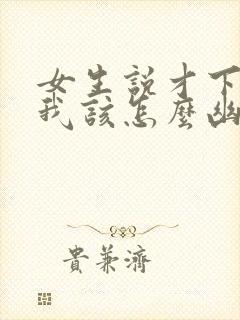 女生說才下
我該怎麼幽
貴兼濟